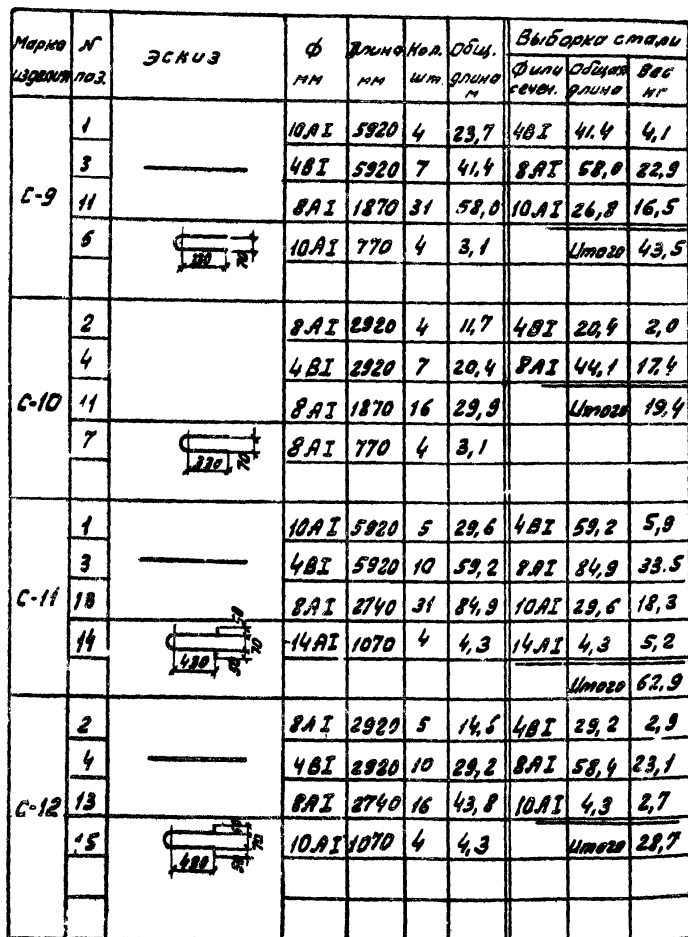 Марка изделия N поз. Эскиз ф мм Длина мм Кол. шт. Общ. длина м Выборка стали
ф или сечен. Общая длина Вес кг
С-9
1 10АI 5920 4 23,7 4ВI 41.4 4,1
3 4ВI 5920 7 41,4 8АI 58,0 22,9
11 8АI 1870 31 58,0 10.АI 26,8 16,5
6 70 10АI 770 4 3,1 Итого 43,5
С-10
2 8АI 2920 4 11,7 4ВI 20,4 2,0
4 4ВI 2920 7 20,4 8АI 44,1 17,4
11 8АI 1870 16 29,9 Итого 19,4
7 330 70 8АI 770 4 3,1
С-11
1 10АI 5920 5 29,6 4ВI 59,2 5,9
3 4ВI 5920 10 59,2 8АI 84,9 33.5
13 8АI 2740 31 84,9 10АI 29,6 18,3
14 480 50 70 50 14АI 1070 4 4,3 14АI 4,3 5,2
Итого 62,9
С-12
2 8АI 2920 5 14,6 4ВI 29,2 2,9
4 4ВI 2920 10 29,2 8АI 58,4 23,1
13 8АI 2740 16 43,8 10АI 4,3 2,7
15 480 50 70 50 10АI 1070 4 4,3 Итого 28,7